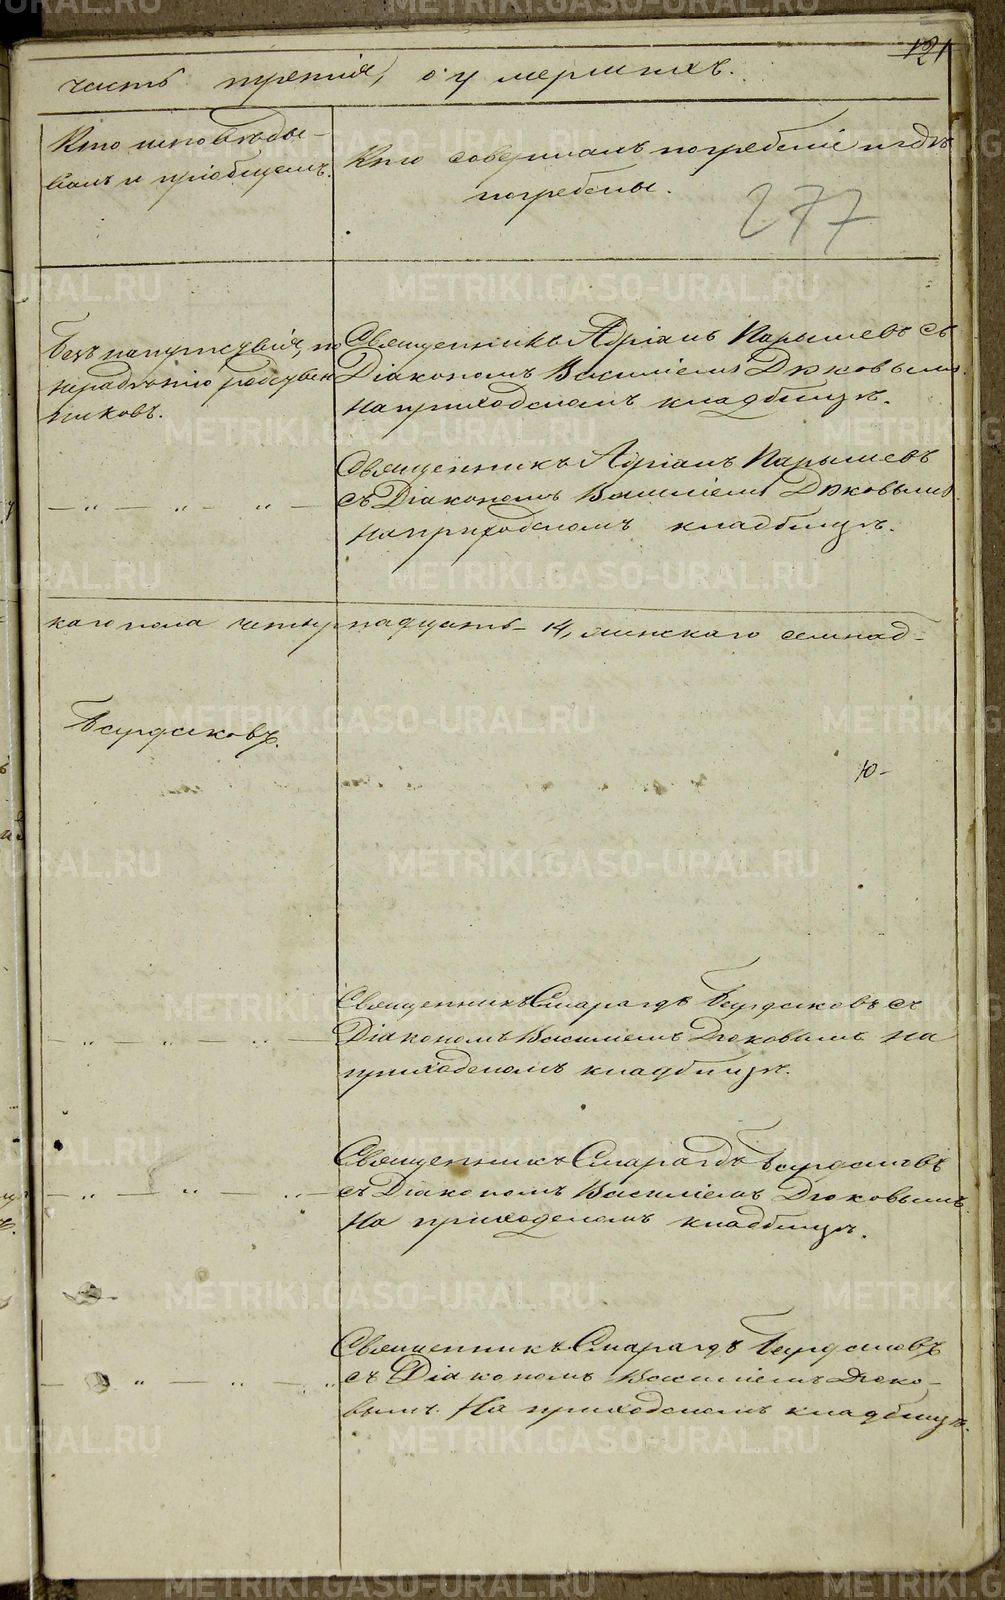 121
часть третія, о умершихъ.
Кто исповѣды-
валъ и пріобщалъ.
Кто совершалъ погребеніе и гдѣ
погребены.
277
Безъ напутствія, по
нерадѣнію родствен
никовъ.
Священникъ Адріанъ Парышевъ съ
Діакономъ Василіемъ Дюковымъ.
на приходскомъ кладбищѣ.
Священникъ Адріанъ Парышевъ
съ Діакономъ Василіемъ Дюковымъ
на приходскомъ кладбищѣ.
— „ — „ — „ —
каго пола четырнадцать 14, женскаго семнад-
Бурдуковъ.
Ю-
— „ — „ — „ —
Священникъ Смарагдъ съ
Діакономъ Василіемъ Дюковымъ на
приходскомъ кладбищѣ.
— „ — „ — „ —
Священникъ Смарагдъ
съ Діакономъ Василіемъ Дюковымъ.
На приходскомъ кладбищѣ.
— „ — „ — „
Священникъ Смарагдъ
съ Діакономъ Василіемъ Дюко-
вымъ. На приходскомъ кладбищѣ.
METRIKI.GASO-URAL.RU